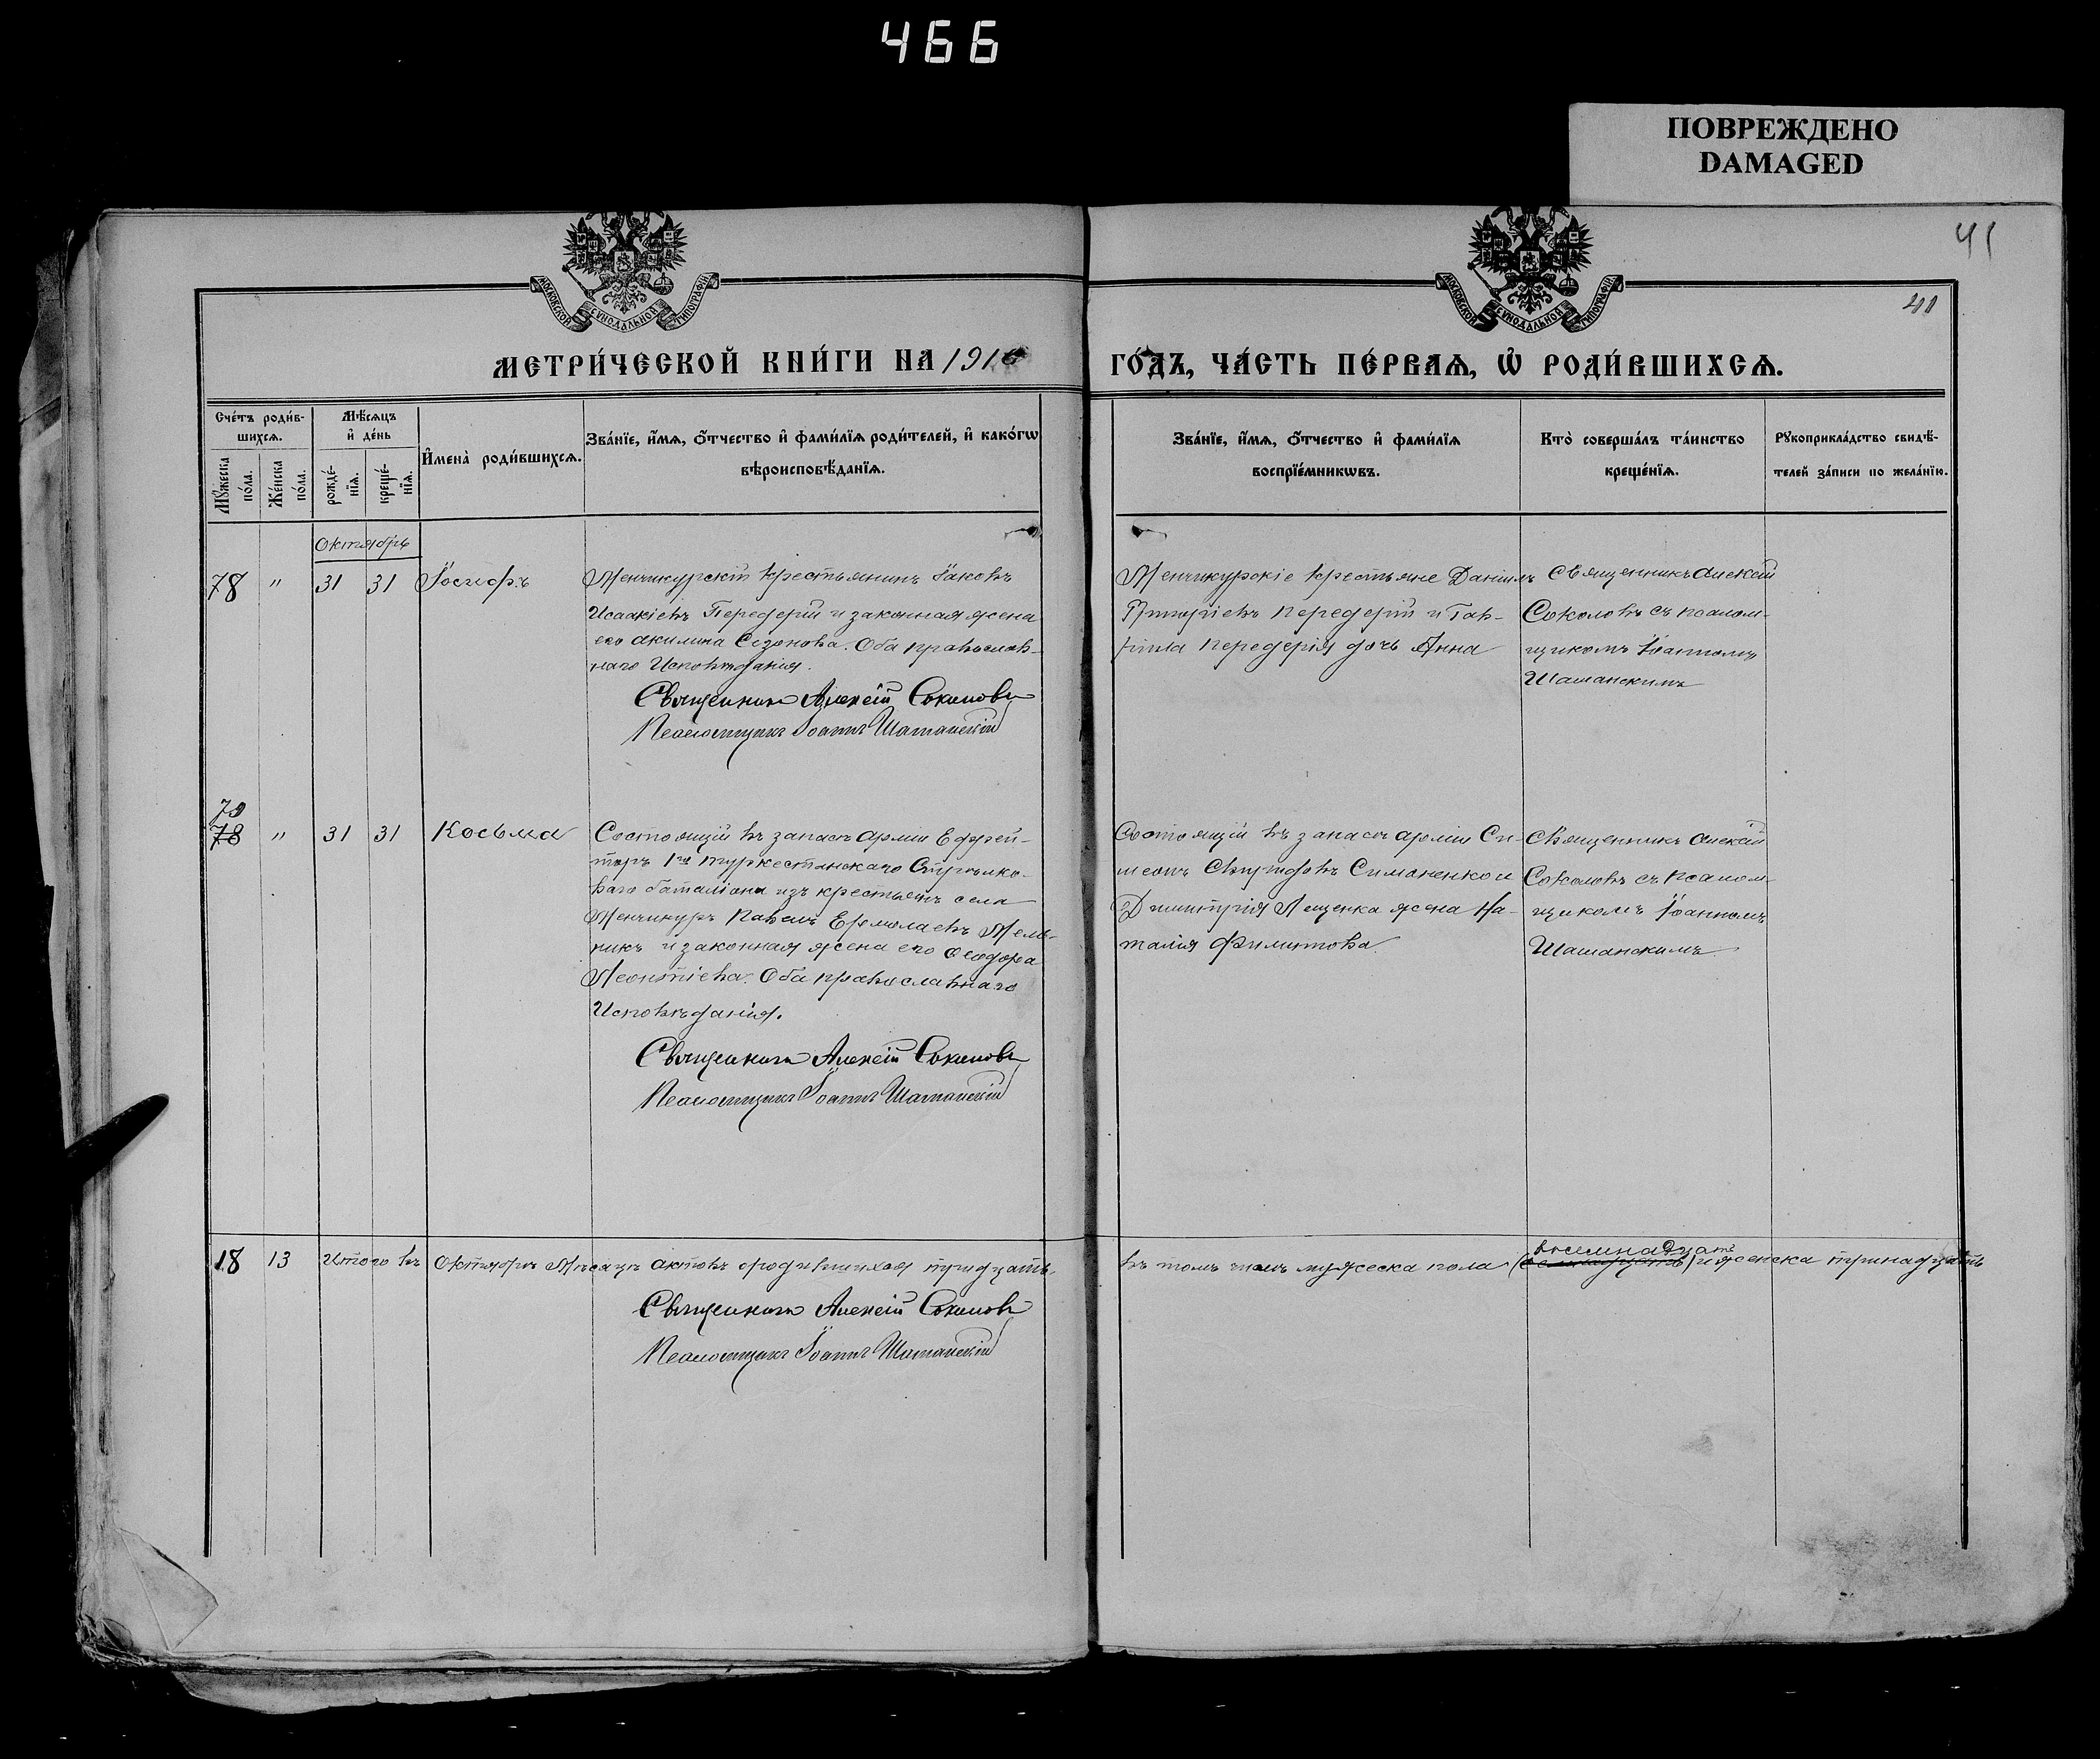 466
ПОВРЕЖДЕНО
DAMAGED
41
41
МОСКОВСКОЙ СѴНОДАЛЬНОЙ ТИПОГРАФІИ
МОСКОВСКОЙ СѴНОДАЛЬНОЙ ТИПОГРАФІИ
МЕТРИ́ЧЕСКОЙ КНИ́ГИ НА 191
ГО́ДЪ, ЧА́СТЬ ПЕ́РВАѦ, Ѽ РОДИ́ВШИХСѦ.
Сче́тъ роди́в-
шихсѧ.
Мꙋ́жеска
по́ла.
Же́нска
по́ла.
Мѣ́сѧцъ
и҆ де́нь
рожде́-
нїѧ.
креще́-
нїѧ.
И҆мена̀ роди́вшихсѧ.
Зва́нїе, и҆́мѧ, ѻ҆́тчество и҆ фами́лїѧ роди́телей, и҆ како́гѡ
вѣроисповѣ́данїѧ.
Зва́нїе, и҆́мѧ, ѻ҆́тчество и҆ фами́лїѧ
воспрїе́мникѡвъ.
Кто̀ соверша́лъ та́инство
креще́нїѧ.
Рꙋкоприкла́дство свидѣ́-
телей за́писи по жела́нїю.
Октябрь
78 " 31 31 Іосифъ
Менчикурскій крестьянинъ Іаковъ
Исаакіевъ Передерій и законная жена
его Акилина Сезонова. Оба православ-
наго Исповѣданія.
Священникъ Алексій Соколовъ
Псаломщикъ Іоаннъ Шаманскій
Менчикурскіе крестьяне Даніилъ
Григоріевъ Передерій и Гав-
ріила Передерія дочь Анна
Священникъ Алексій
Соколовъ съ псалом-
щикомъ Іоанномъ
Шаманскимъ
79
78 " 31 31 Косьма
Состоящій въ запасѣ арміи Ефрей-
торъ 1го Туркестанскаго Стрѣлко-
ваго баталіона изъ крестьянъ села
Менчикуръ Павелъ Ермолаевъ Мель-
никъ и законная жена его Ѳеодора
Леонтіева. Оба православнаго
Исповѣданія.
Священникъ Алексій Соколовъ
Псаломщикъ Іоаннъ Шаманскій
Состоящій въ запасѣ арміи Си-
меонъ Симоненко и
Димитрія Лещенка жена На-
талія Филиппова
Священникъ Алексій
Соколовъ съ псалом-
щикомъ Іоанномъ
Шаманскимъ
18 13 Итого въ Октябрѣ Мѣсяцѣ актовъ о родившихся тридцать,
въ томъ числѣ мужеска пола восемнадцать и женска тринадцать
Священникъ Алексій Соколовъ
Псаломщикъ Іоаннъ Шаманскій